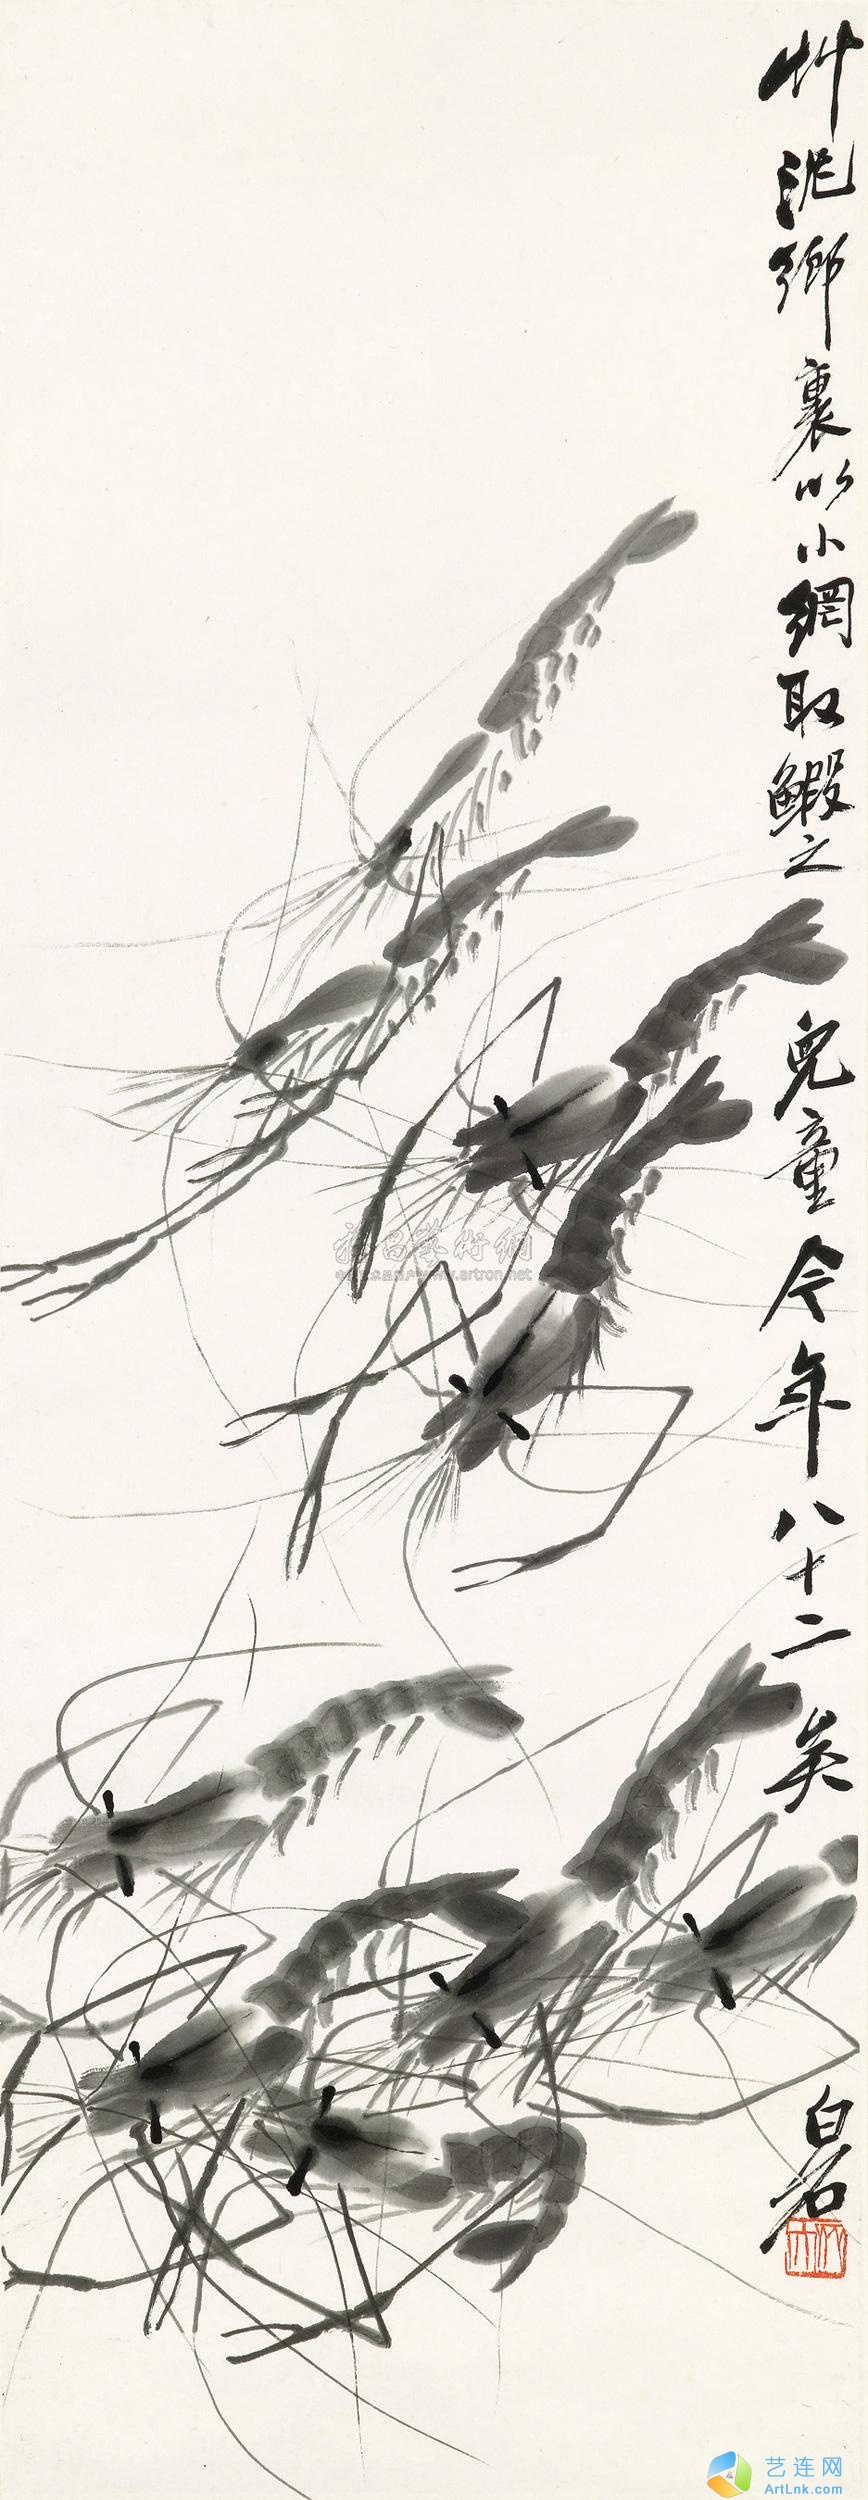 艸泥鄉裏以小網取鰕之兒童今年八十二矣
白石
木人
雅昌藝術網
www.artron.net
艺连网
ArtLnk.com